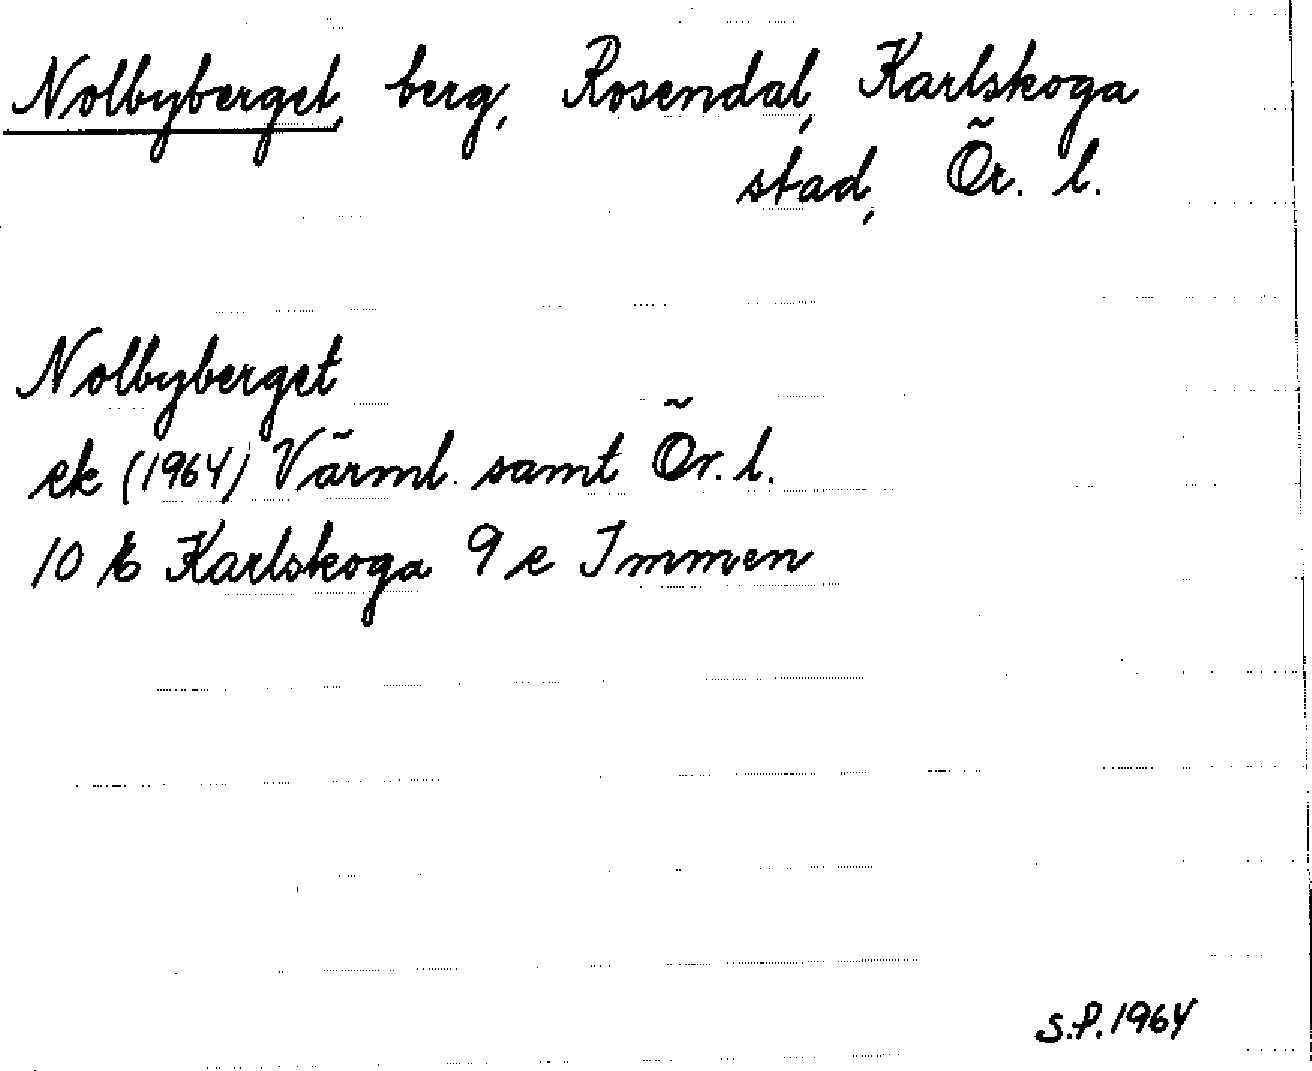 Nolbyberget, berg, Rosendal, Karlskoga
stad, Ör. l.
Nolbyberget
ek (1964) Värml. samt Ör. l.
10 E Karlskoga 9 e Immen
S.P. 1964